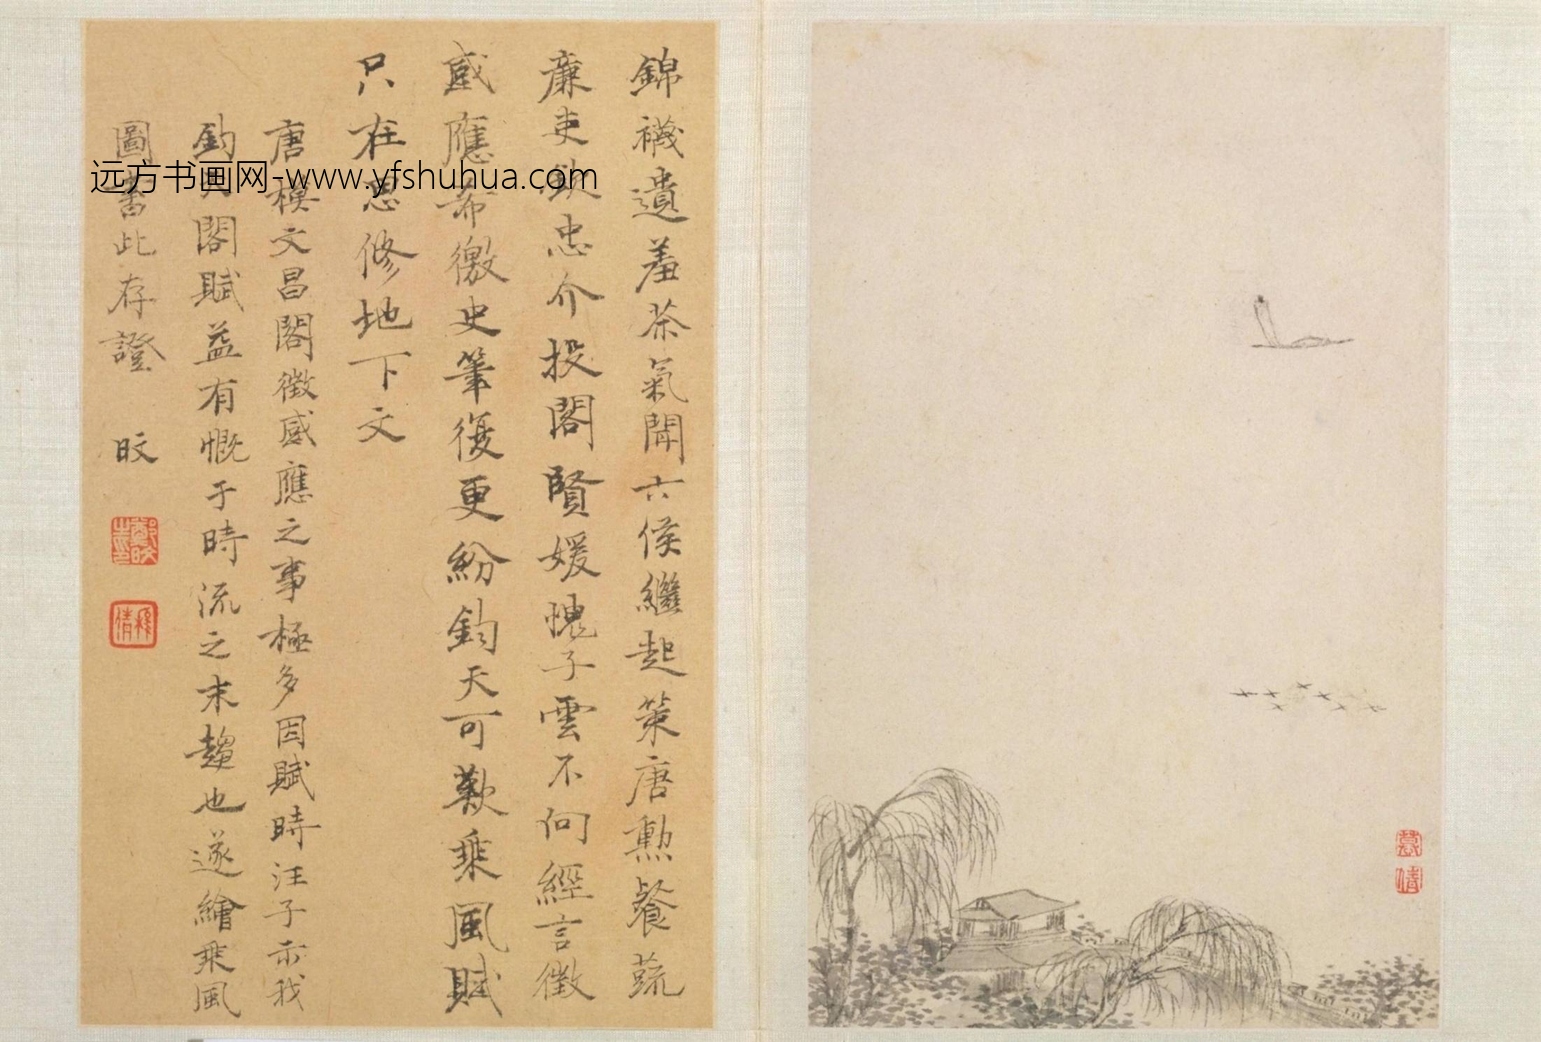 錦襪遺羞茶氣聞六侯繼起策唐勳餐蔬
廉吏欽忠介投閣賢媛愧子雲不向經言徵
感應希徼史筆復更紛鈞天可歎乘風賦
只在思修地下文
唐模文昌閣徵感應之事極多因賦時汪子示我
鈞天閣賦益有慨于時流之末趨也遂繪乘風
圖書此存證 旼
远方书画网-www.yfshuhua.com
鄭旼
慕倩